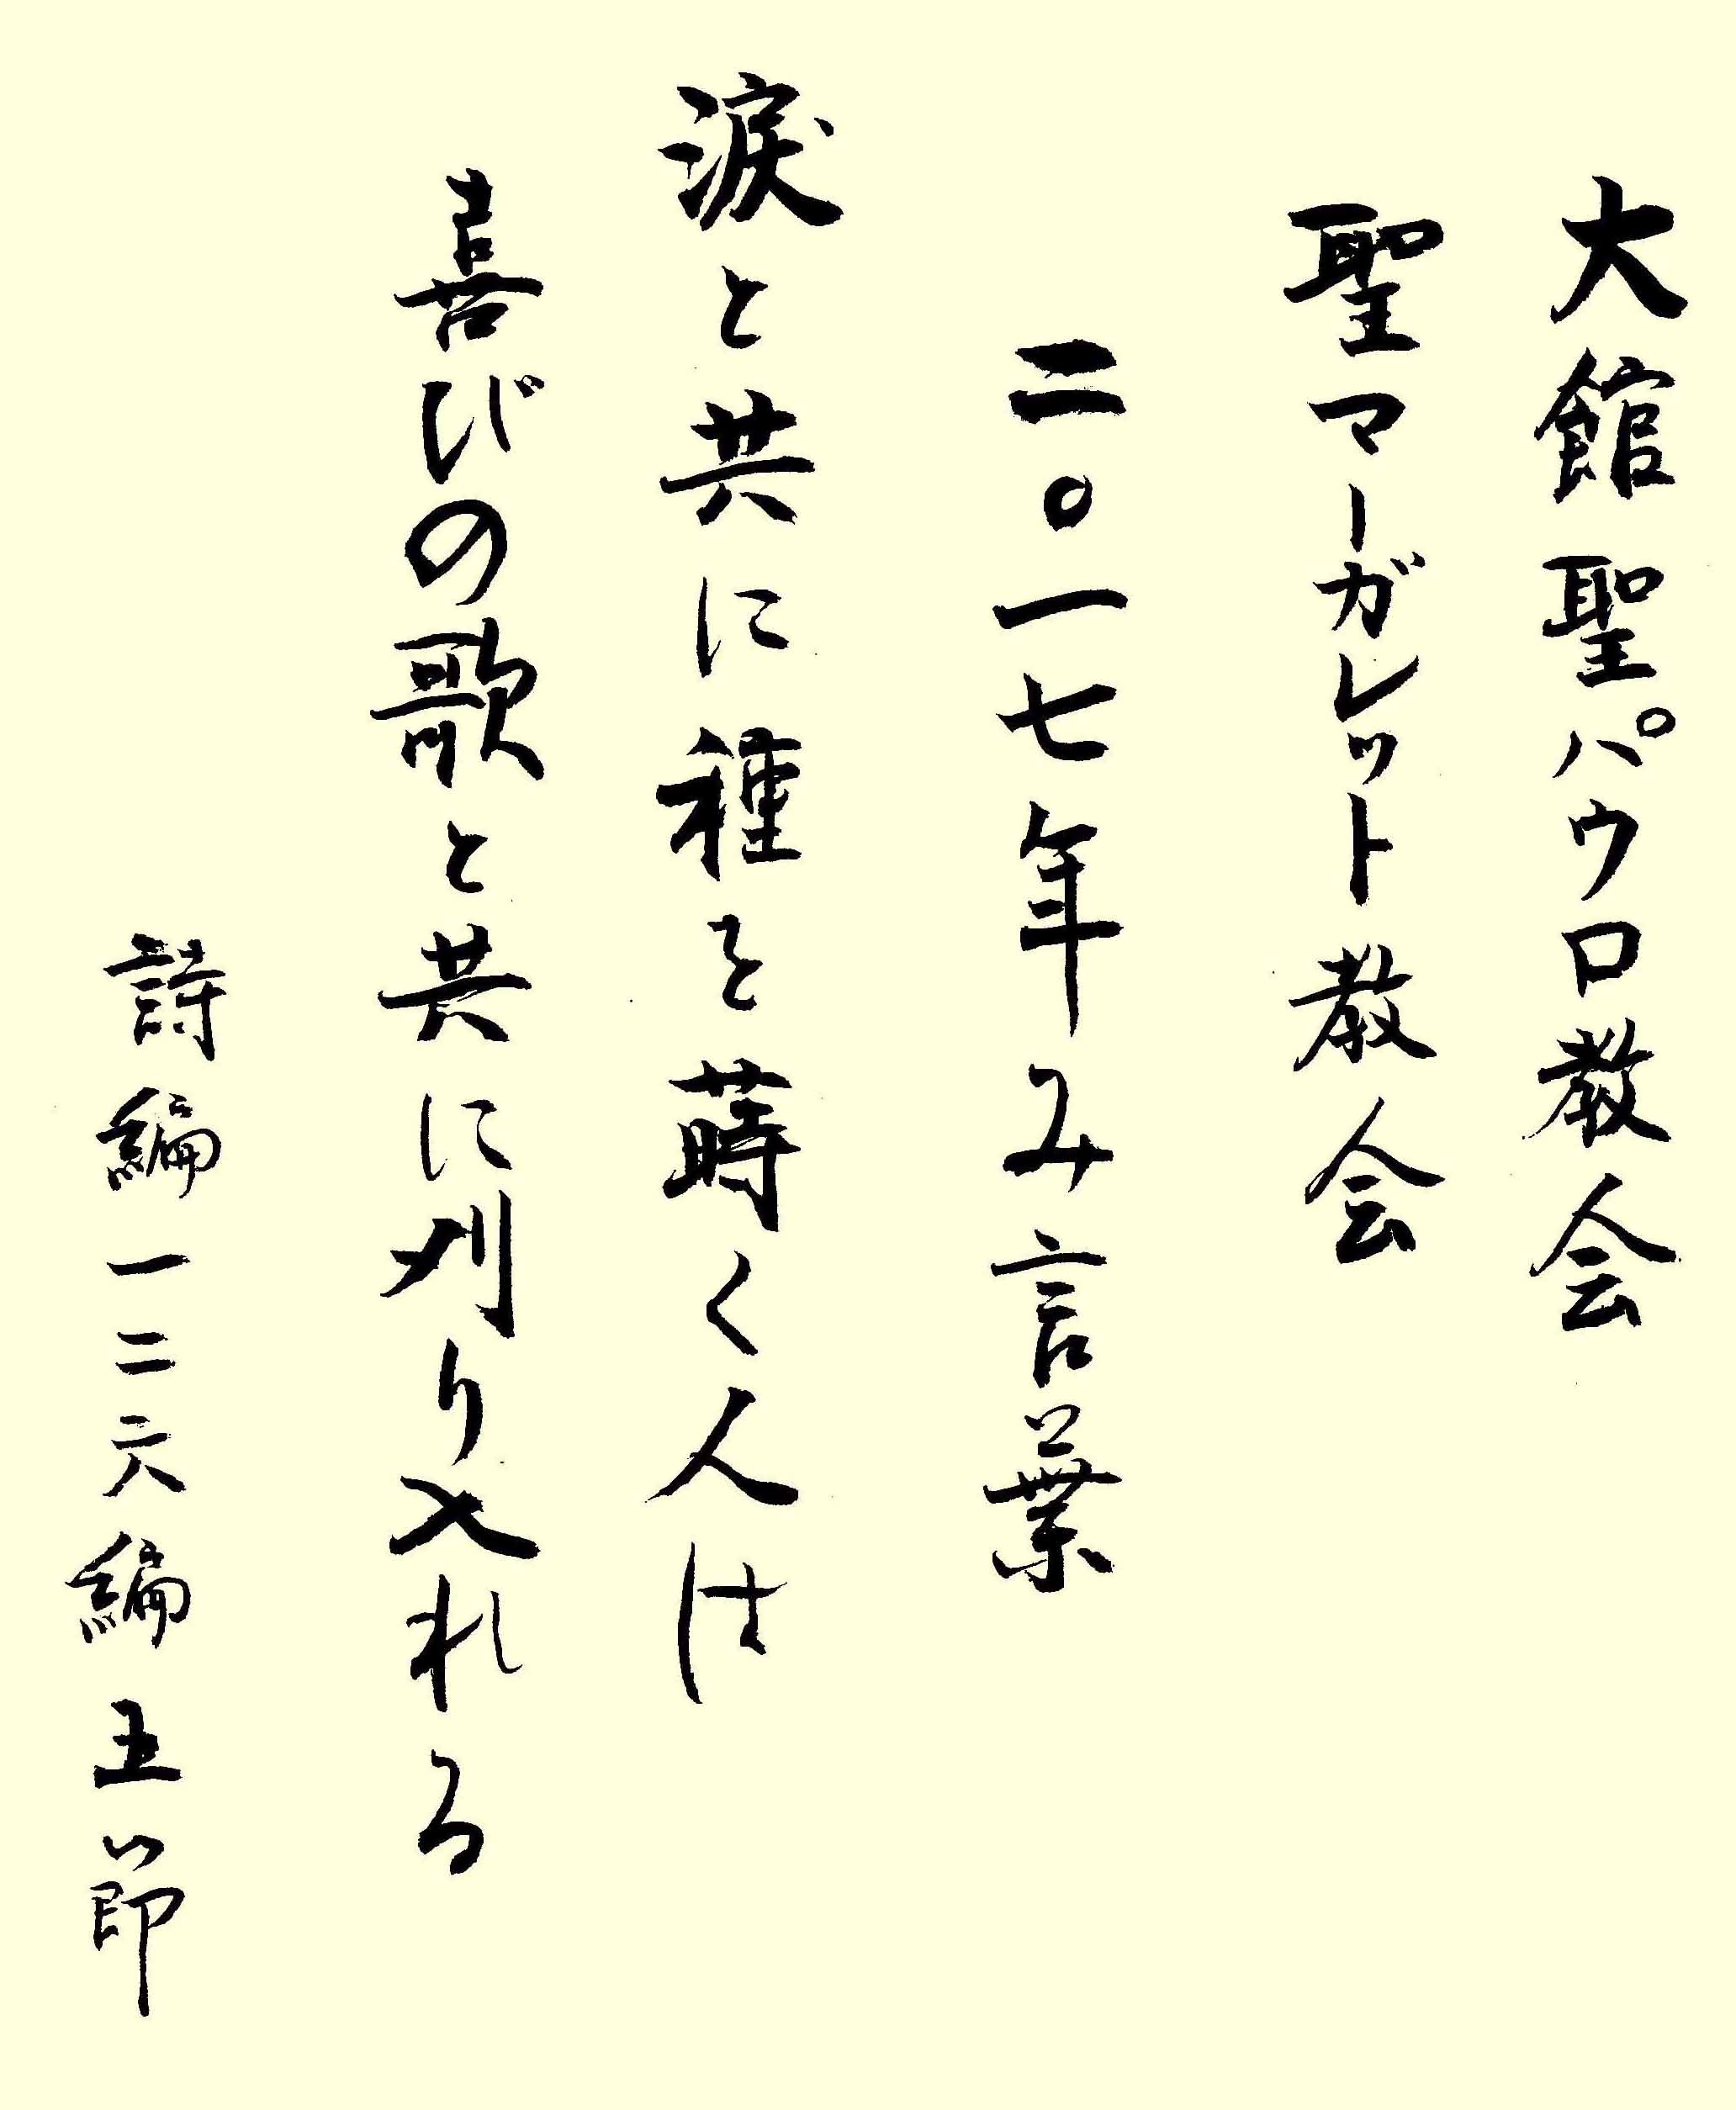 大館聖パウロ教会
聖マーガレット教会
二〇一七年み言葉
涙と共に種を蒔く人は
喜びの歌と共に刈り入れる
詩編一二六編五節